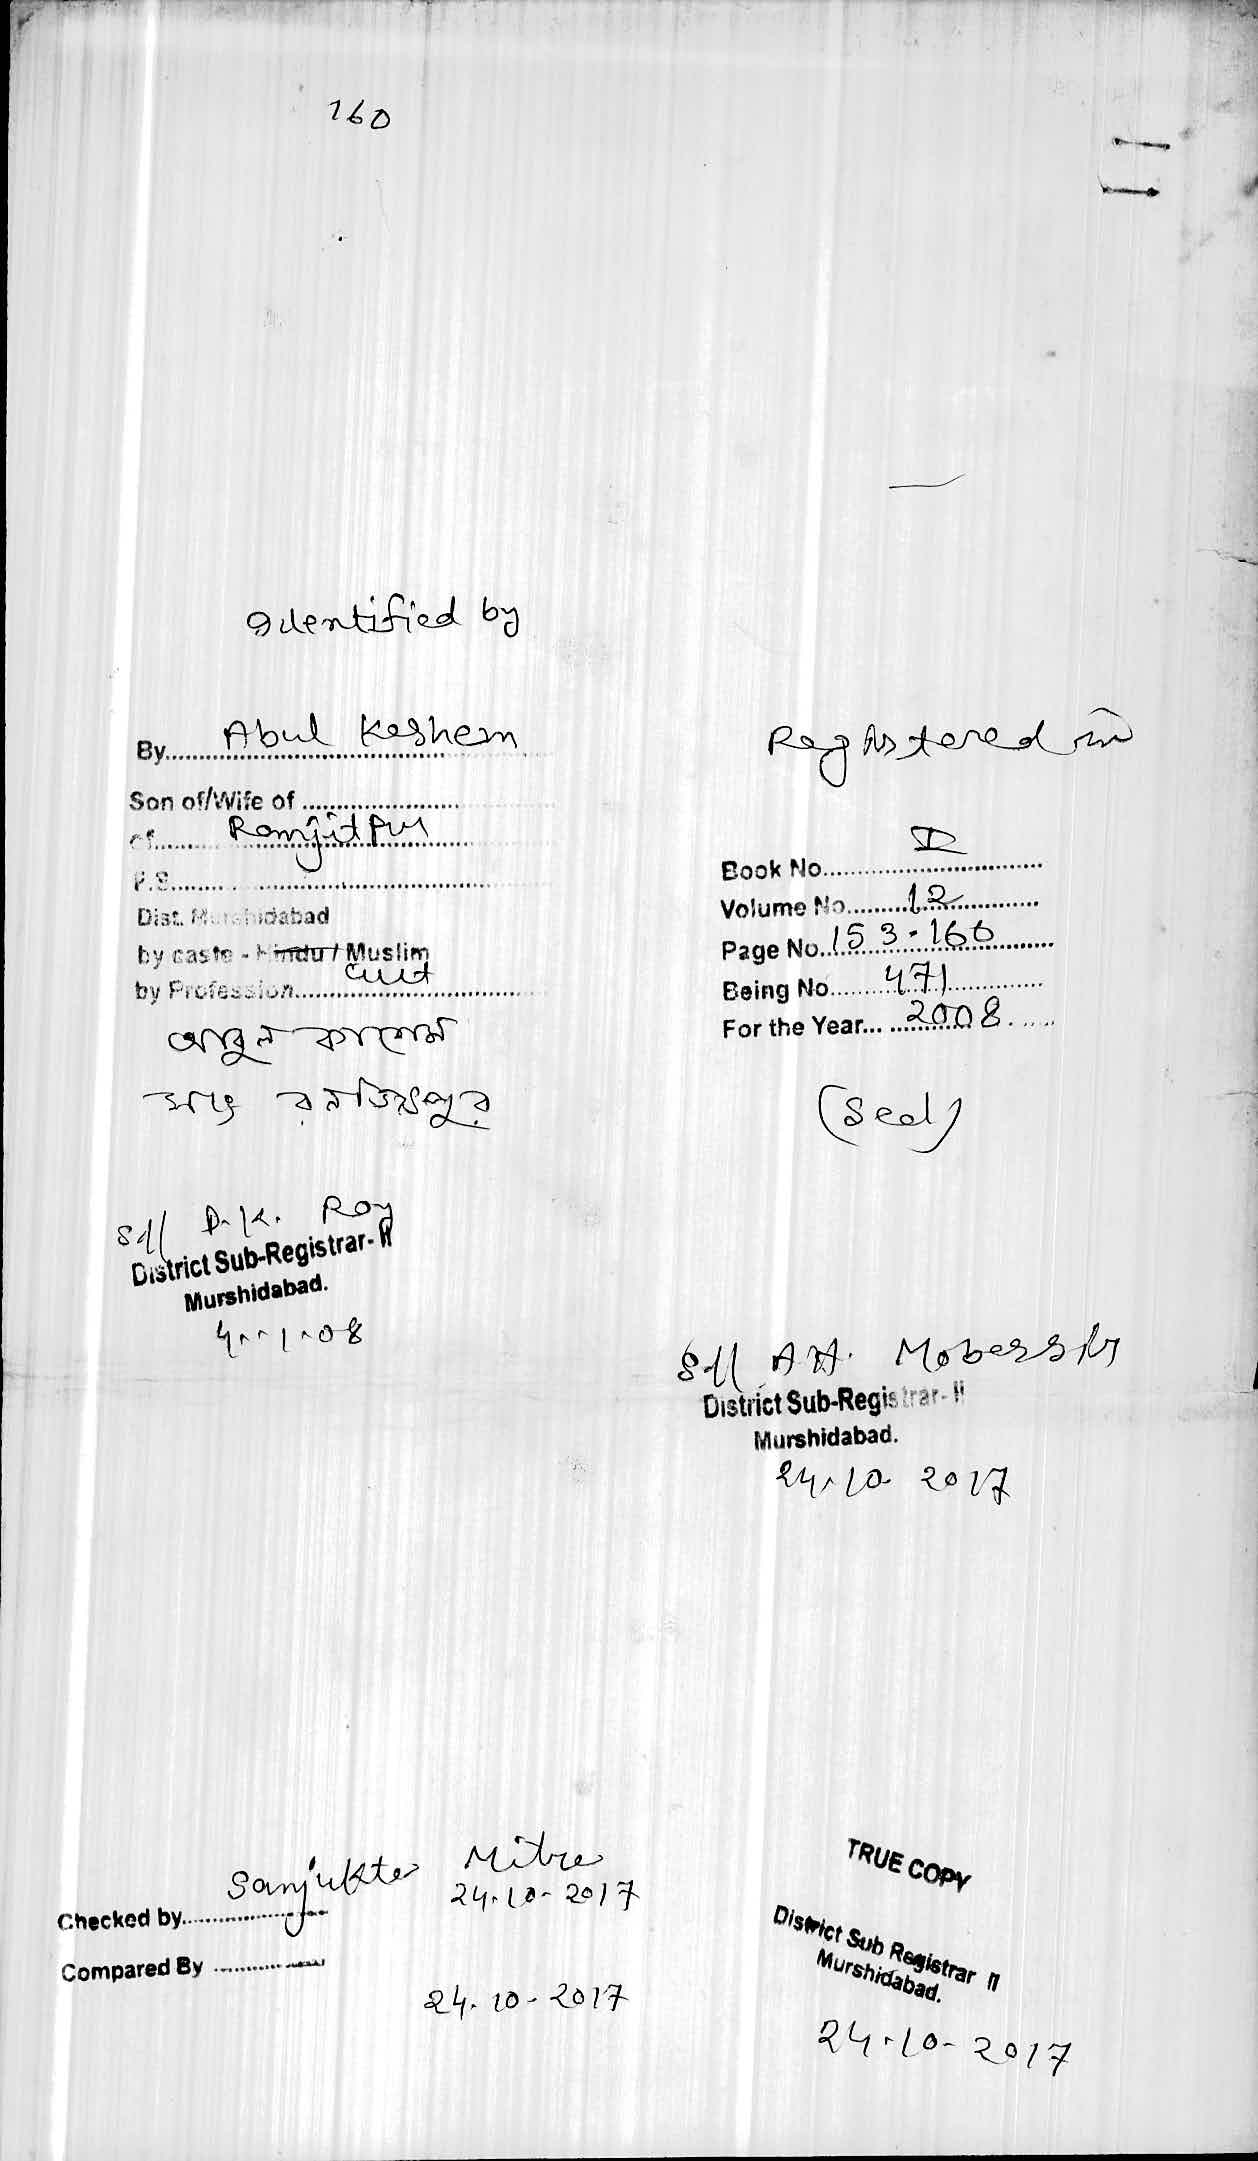 160
Identified by
By........ Abul Kashem
Son of/Wife of ........
of........ Ramjitpur
P.S........
Dist. Murshidabad
by caste - Hindu / Muslim
by Profession........ Cult
আবুল কাশেম
সাং রনজিতপুর
Sd/ D.K. Roy
District Sub-Registrar- II
Murshidabad.
4.1.08
Registered in
Book No........ I
Volume No........ 12
Page No. 153-160
Being No........ 471
For the Year... 2008
(Seal)
Sd/ A.H.
District Sub-Registrar- II
Murshidabad.
24.10.2017
Sanjukta Mitra
24-10-2017
Checked by........
Compared By ........
24-10-2017
TRUE COPY
District Sub Registrar II
Murshidabad.
24-10-2017